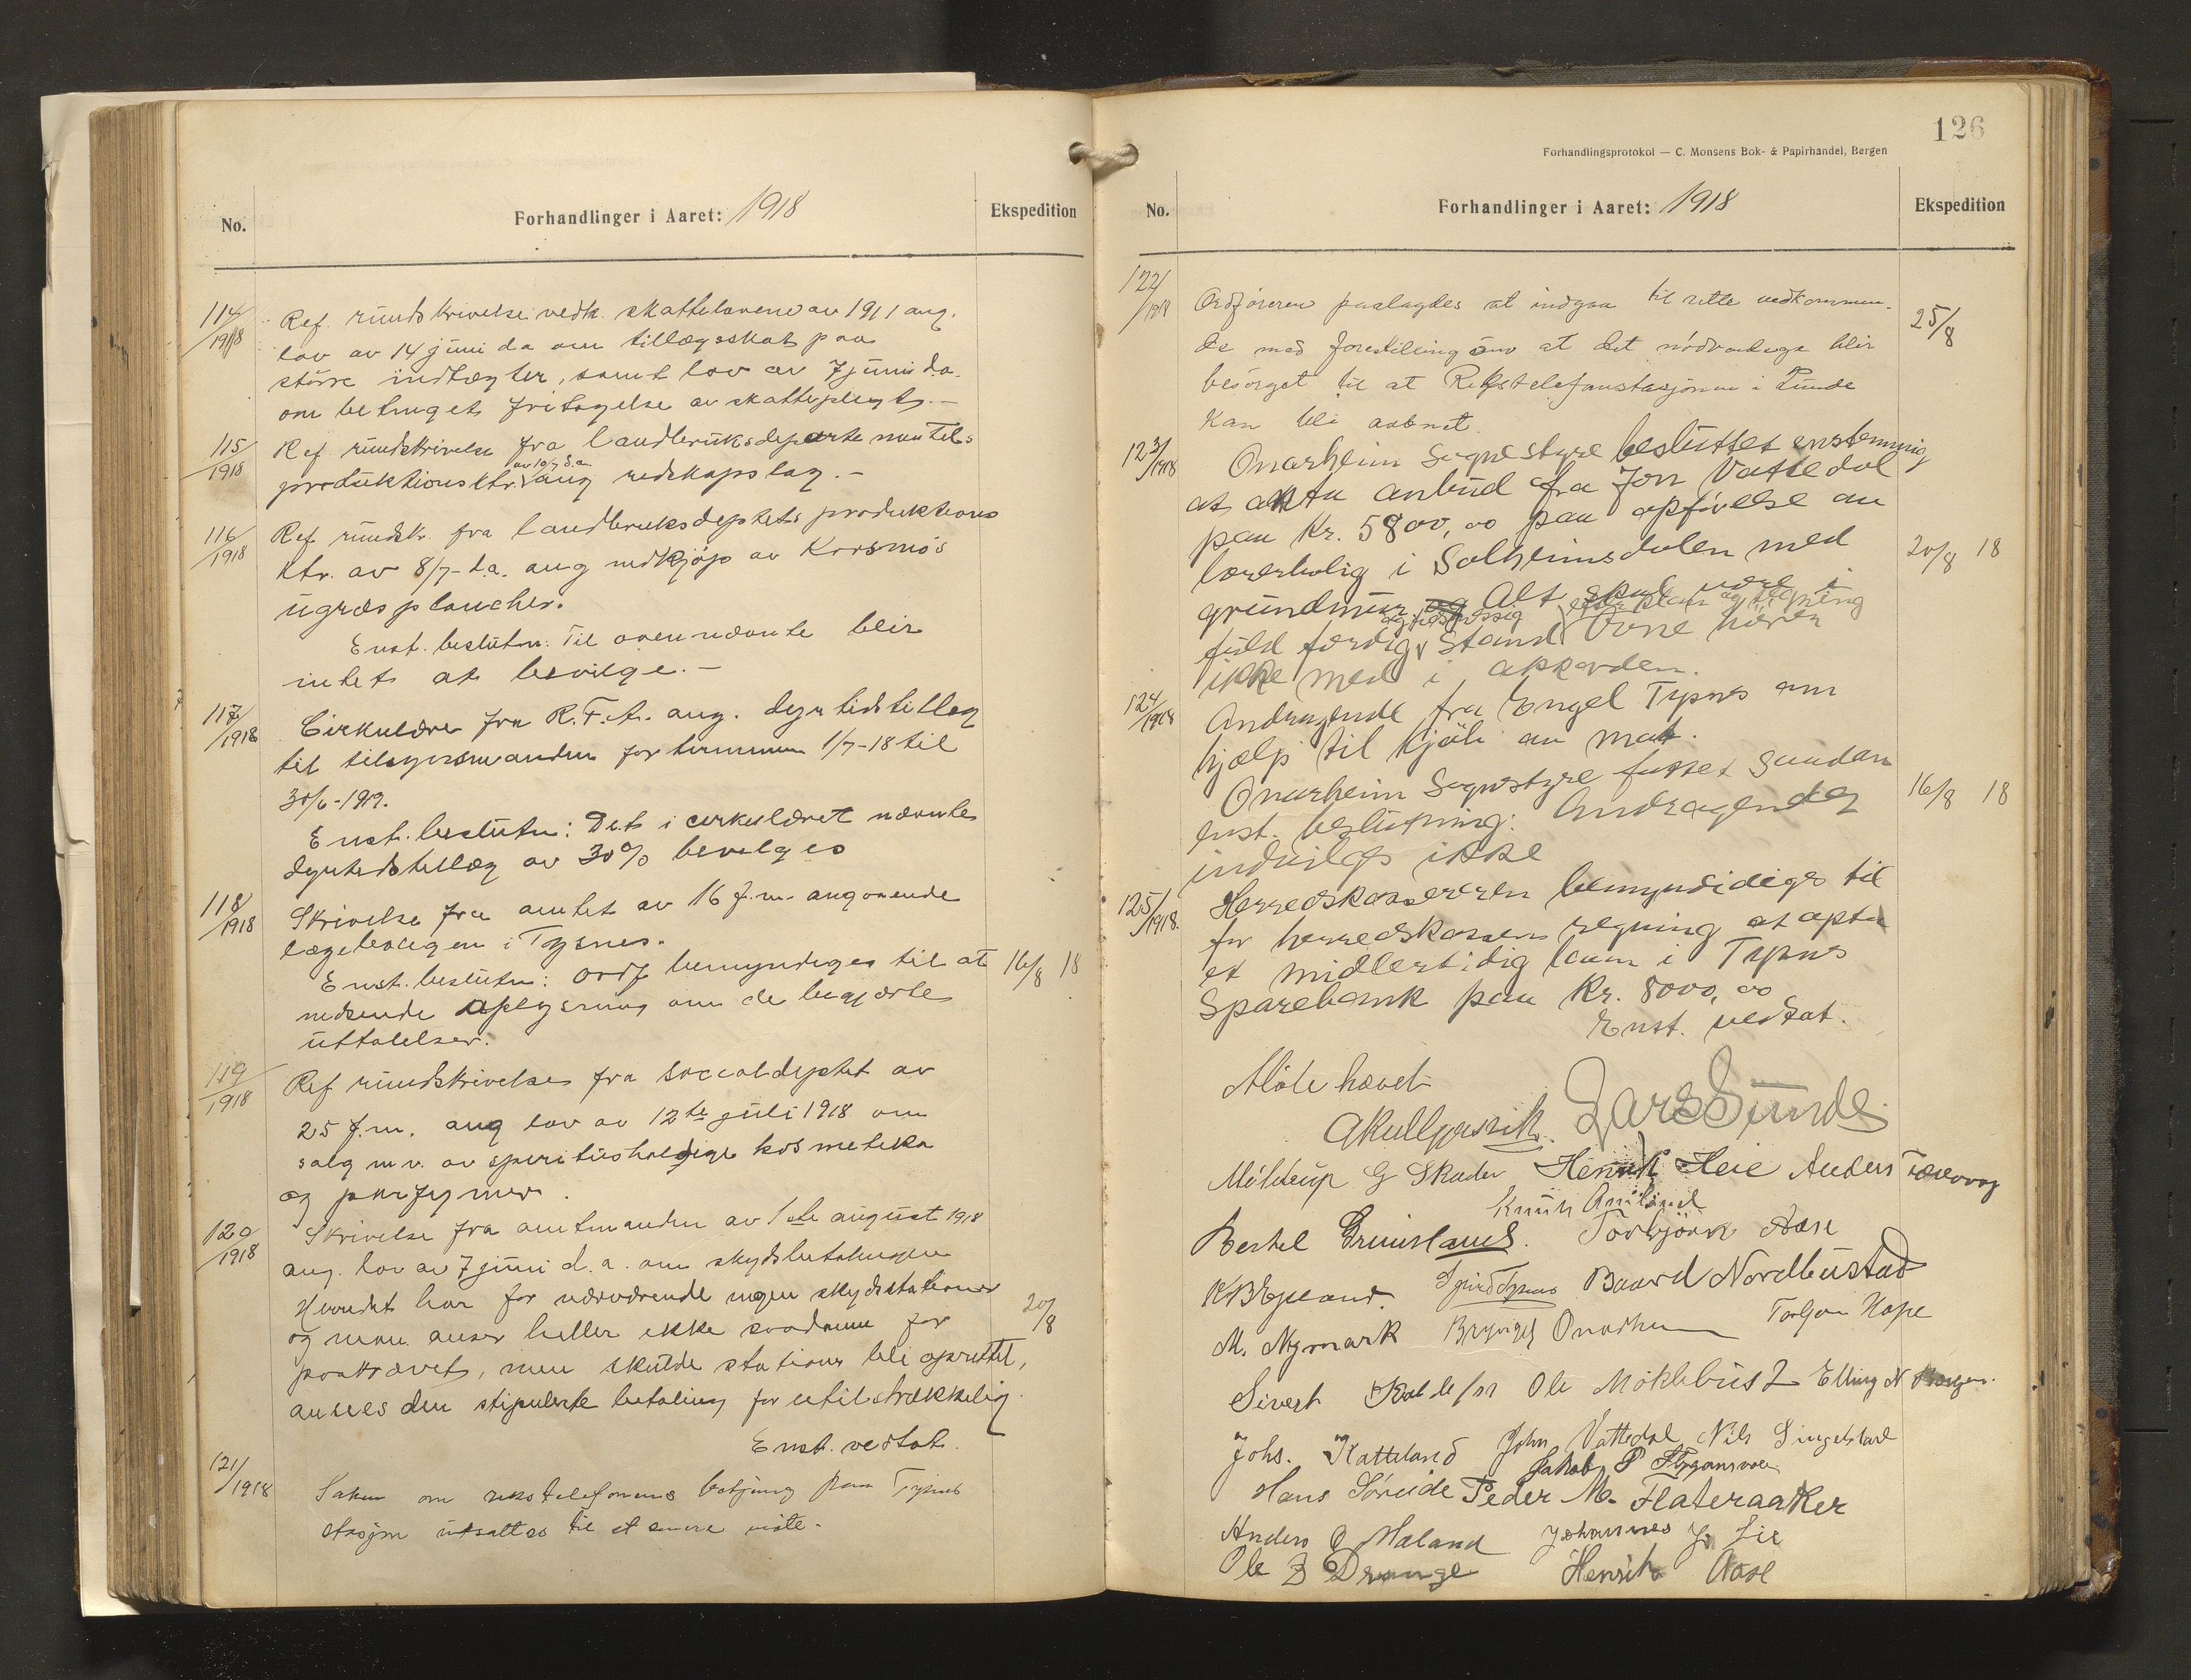 No.
Forhandlinger i Aaret: 1918
Ekspedition
114/1918
Ref. rundskrivelse vedk. skattelovene av 1911 ang.
lov av 14 juni d.a om tillægsskat paa
större indtægter, samt lov av 7 juni d.a.
om betinget fritagelse av skatteplegt.-
115/1918
Ref rundskrivelse fra landbruksdepartementets
produktionsktr. av 10/7 d.a. ang redskapslag.-
116/1918
Ref. rundskr. fra landbruksdeptets produktions
ktr. av 8/7- d.a. ang indkjöp av Korsmo's
ugræsplancher.
Enst. beslutn: Til ovennævnte blir
intet at bevilge.-
117/1918
Cirkulære fra R.F.A. ang. dyrtidstillæg
til tilsynsmanden for terminen 1/7-18 til
30/6-1919.
Enst. beslutn: Det i cirkulæret nævnte
dyrtidstillæg av 30% bevilges
118/1918
Skrivelse fra amtet av 16 f.m. angaaende
lægeboligen i Tysnes.
Enst. beslutn: Ordf bemyndiges til at
16/8 18
indsende oplysning om de begjærte
uttalelser.
119/1918
Ref rundskrivelse fra socialdeptet av
25 f.m. ang lov av 12te juli 1918 om
salg m v. av spiritusholdige kosmetika
og parfymer.
120/1918
Skrivelse fra amtmanden av 1ste august 1918
ang. lov av 7 juni d.a. om skydsbetalingen
Herredet har for nærværende ingen skydsstationer
20/8
og man anser heller ikke saadanne for
paakrævet, men skulde stationer bli oprettet,
ansees den stipulerte betaling for utilstrækkelig.
Enst. vedtat.
121/1918
Saken om rikstelefonens betjening paa Tysnes
stasjon utsattes til et senere möte.
126
Forhandlingsprotokol — C. Monsens Bok- & Papirhandel, Bergen
No.
Forhandlinger i Aaret: 1918
Ekspedition
122/1918
Ordföreren paalagdes at indgaa til rette vedkommen-
25/8
de med forestilling om at det nödvendige blir
besörget til at Rikstelefonstasjonen i Lunde
kan bli aabnet.
123/1918
Onarheim Sognestyre besluttet enstemmig
at anta anbud fra Jon Vattedal
paa Kr. 5800,00 paa opförelse av
lærerbolig i Solheimsdalen med
20/8 18
grundmur og Alt skal være i
fuld færdig og forsvarlig Stand efter plan og tegning Ovne hörer
ikke med i akkorden.
124/1918
Andragende fra Engel Tysnes om
hjælp til kjöb av mat.
Onarheim Sognestyre fattet saadan
16/8 18
enst. beslutning: Andragendet
indvilges ikke
125/1918.
Herredskassereren bemyndidiges til
for herredskassens regning at opta
et midlertidig laan i Tysnes
Sparebank paa Kr. 8000,00
Enst. vedtat.
Möte hævet
Lars Sunde
G Henrik Heie Anders
Knut
Bertel Torbjörn
Baard Nordbustad
M. Nymark Torgon Hope
Sivert Ole Elling N
Johs. Katteland John Vattedal Nils Singelstad
Jakob P
Hans Söreide Peder M. Flateraaker
Anders O Mæland Johannes J. Lie
Ole Drange Henrik Aase